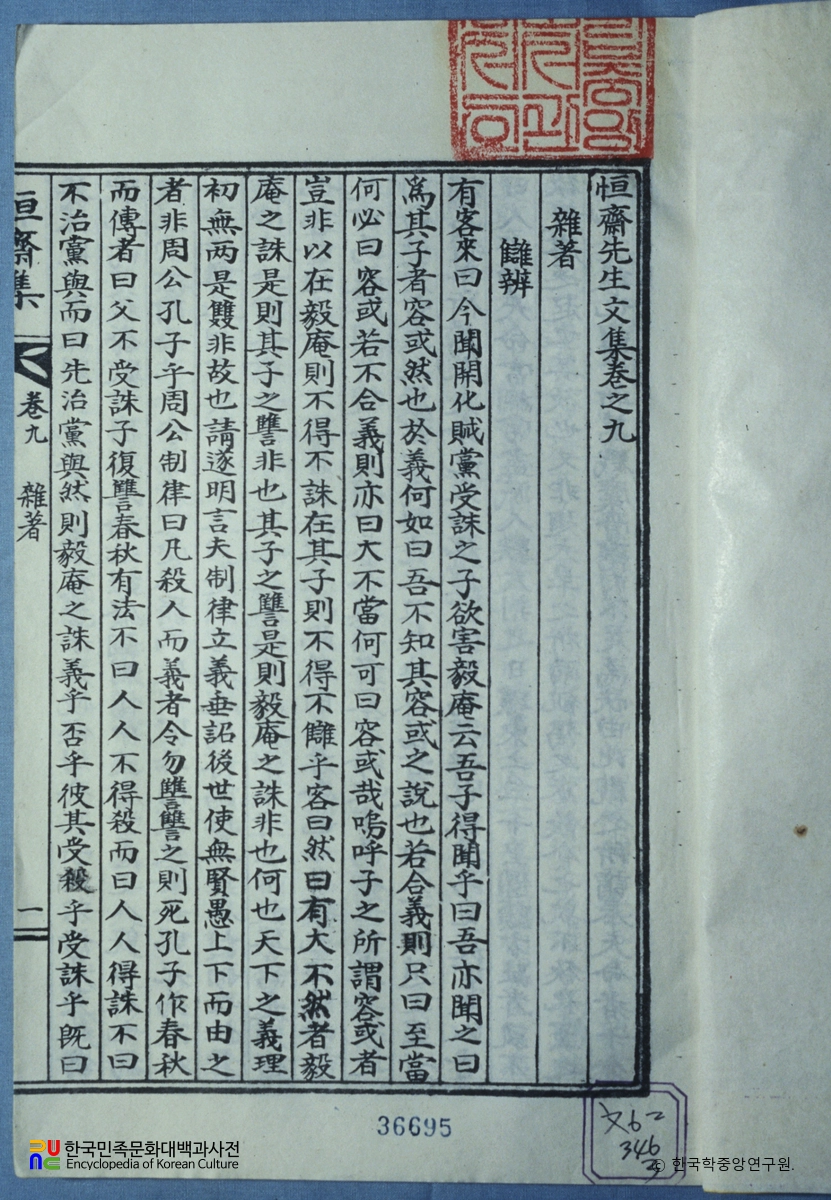 恒齋先生文集卷之九
雜著
讎辨
有客來曰今聞開化賊黨受誅之子欲害毅庵云吾子得聞乎曰吾亦聞之曰
爲其子者容或然也於義何如曰吾不知其容或之說也若合義則只曰至當
何必曰容或若不合義則亦曰大不當何可曰容或哉嗚呼子之所謂容或者
豈非以在毅庵則不得不誅在其子則不得不讎乎客曰然曰有大不然者毅
庵之誅是則其子之讐非也其子之讐是則毅庵之誅非也何也天下之義理
初無两是雙非故也請遂明言夫制律立義垂詔後世使無賢愚上下而由之
者非周公孔子乎周公制律曰凡殺人而義者令勿讐讐之則死孔子作春秋
而傳者曰父不受誅子復讐春秋有法不曰人人不得殺而曰人人得誅不曰
不治黨與而曰先治黨與然則毅庵之誅義乎否乎彼其受殺乎受誅乎旣曰
恒齋集
卷九 雜著
一
36695
文62
346
한국민족문화대백과사전
Encyclopedia of Korean Culture
ⓒ 한국학중앙연구원.